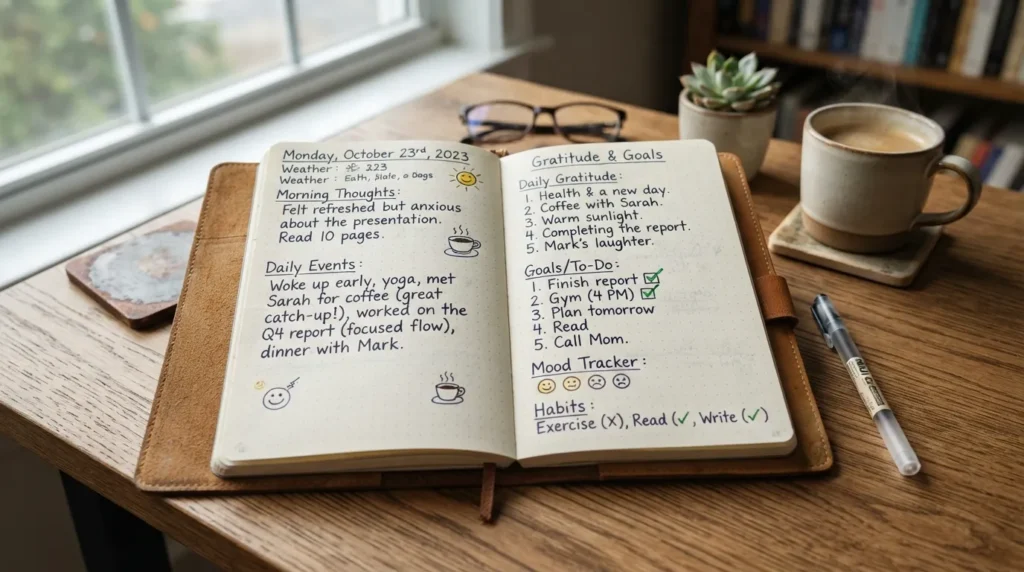 Monday, October 23rd, 2023
Weather : 223
Weather : Eath, Slafe, a Dags
Morning Thoughts:
Felt refreshed but anxious
about the presentation.
Read 10 pages.
Daily Events:
Woke up early, yoga, met
Sarah for coffee (great
catch-up!), worked on the
Q4 report (focused flow),
dinner with Mark.
Gratitude & Goals
Daily Gratitude:
1. Health & a new day.
2. Coffee with Sarah.
3. Warm sunlight.
4. Completing the report.
5. Mark's laughter.
Goals/To-Do:
1. Finish report ☑
2. Gym (4 PM) ☑
3. Plan tomorrow
4. Read
5. Call Mom.
Mood Tracker:
Habits:
Exercise (X), Read (✓, Write (✓)